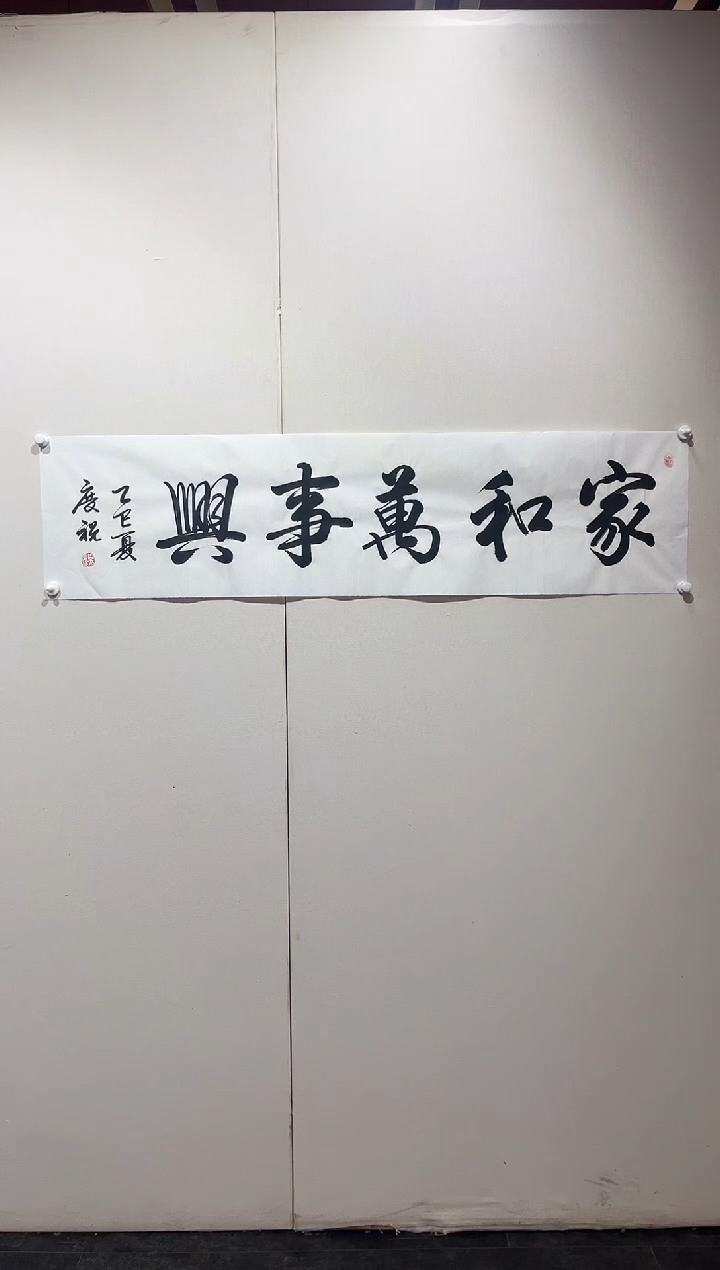 家和萬事興
乙巳夏
度祝